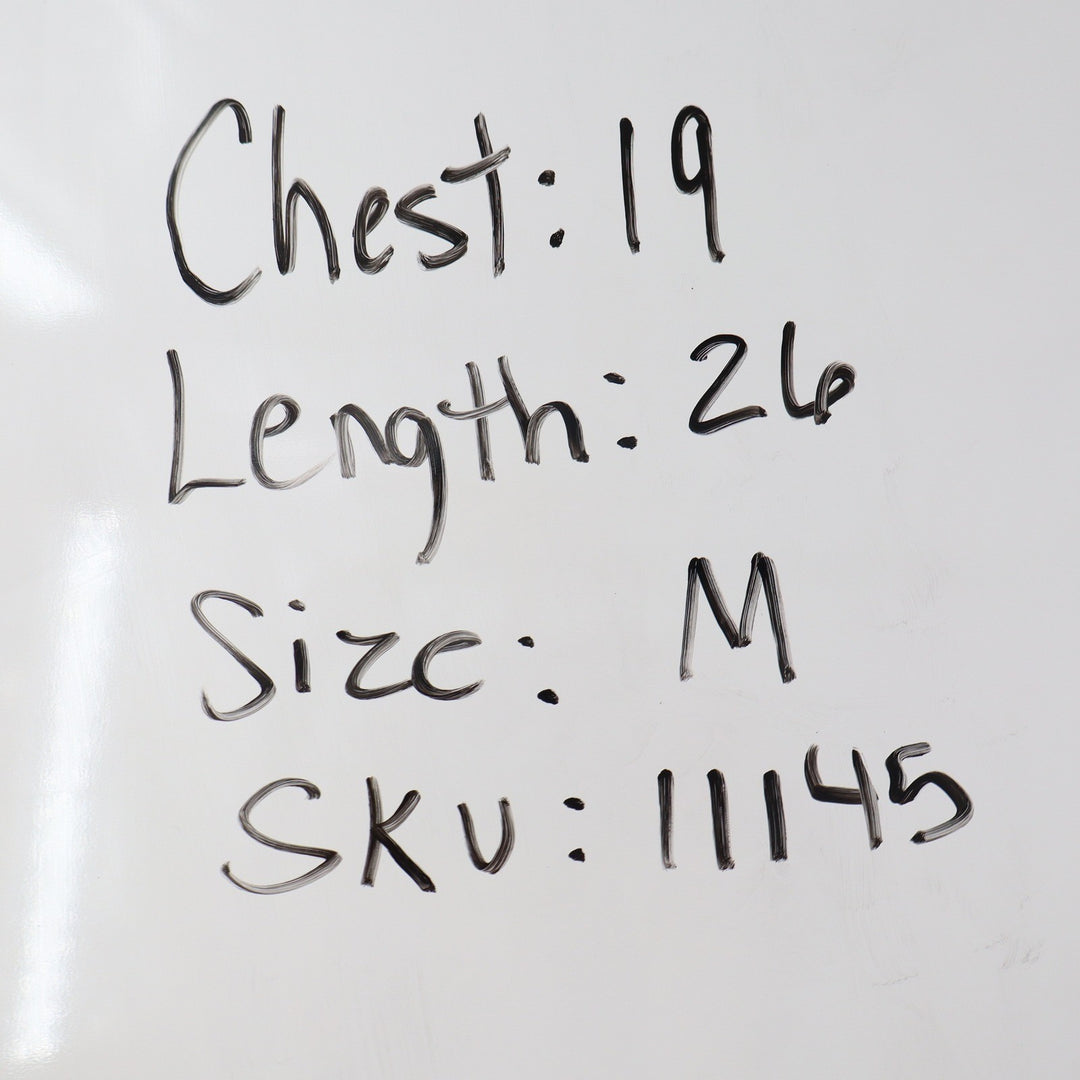 Chest: 19
Length: 26
Size: M
SKU: 11145